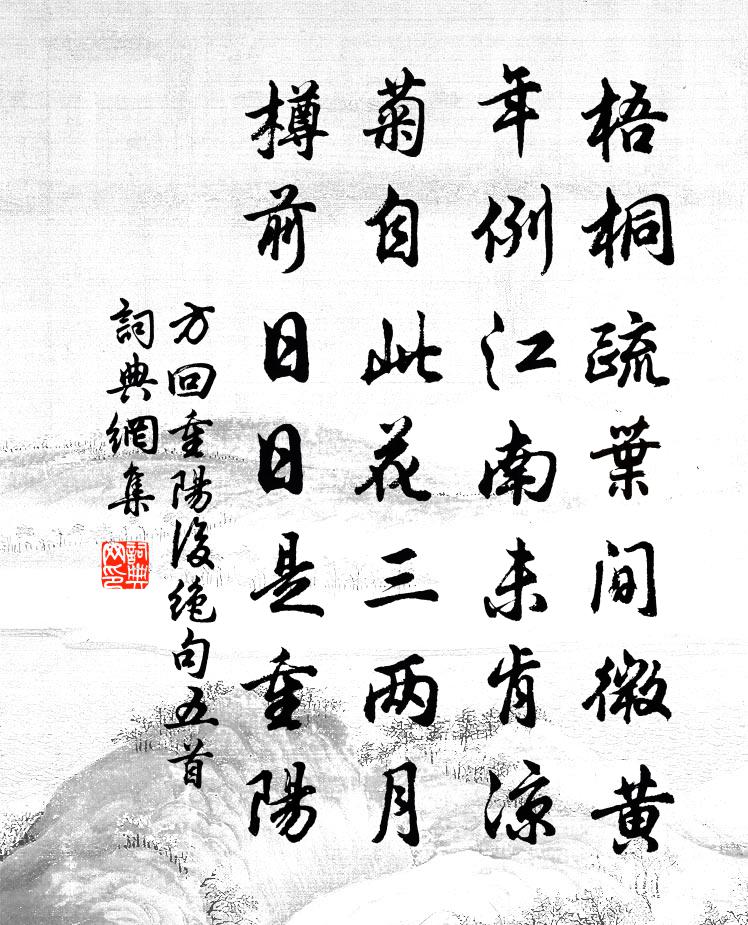 梧桐疏葉間微黄
年例江南未肯涼
菊自此花三兩月
樽前日日是重陽
方回重陽後絶句五首
詞典網集
詞典